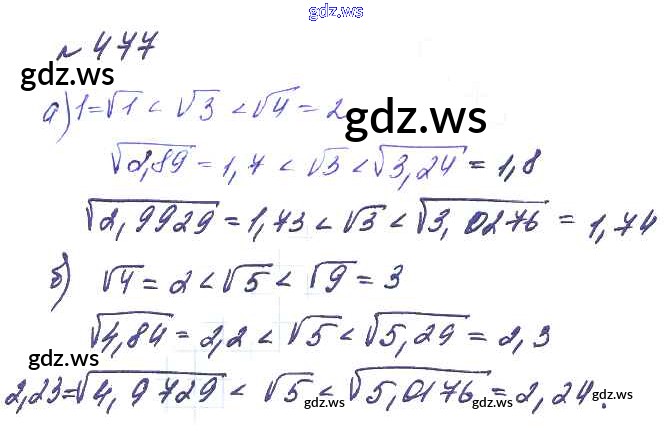 gdz.ws
№ 477
gdz.ws
а) 1=√1 < √3 < √4 = 2
gdz.ws
√2,89 = 1,7 < √3 < √3,24 = 1,8
√2,9929 = 1,73 < √3 < √3,0276 = 1,74
б) √4 = 2 < √5 < √9 = 3
√4,84 = 2,2 < √5 < √5,29 = 2,3
gdz.ws
2,23 = √4,9729 < √5 < √5,0176 = 2,24.
gdz.ws gdz.ws gdz.ws